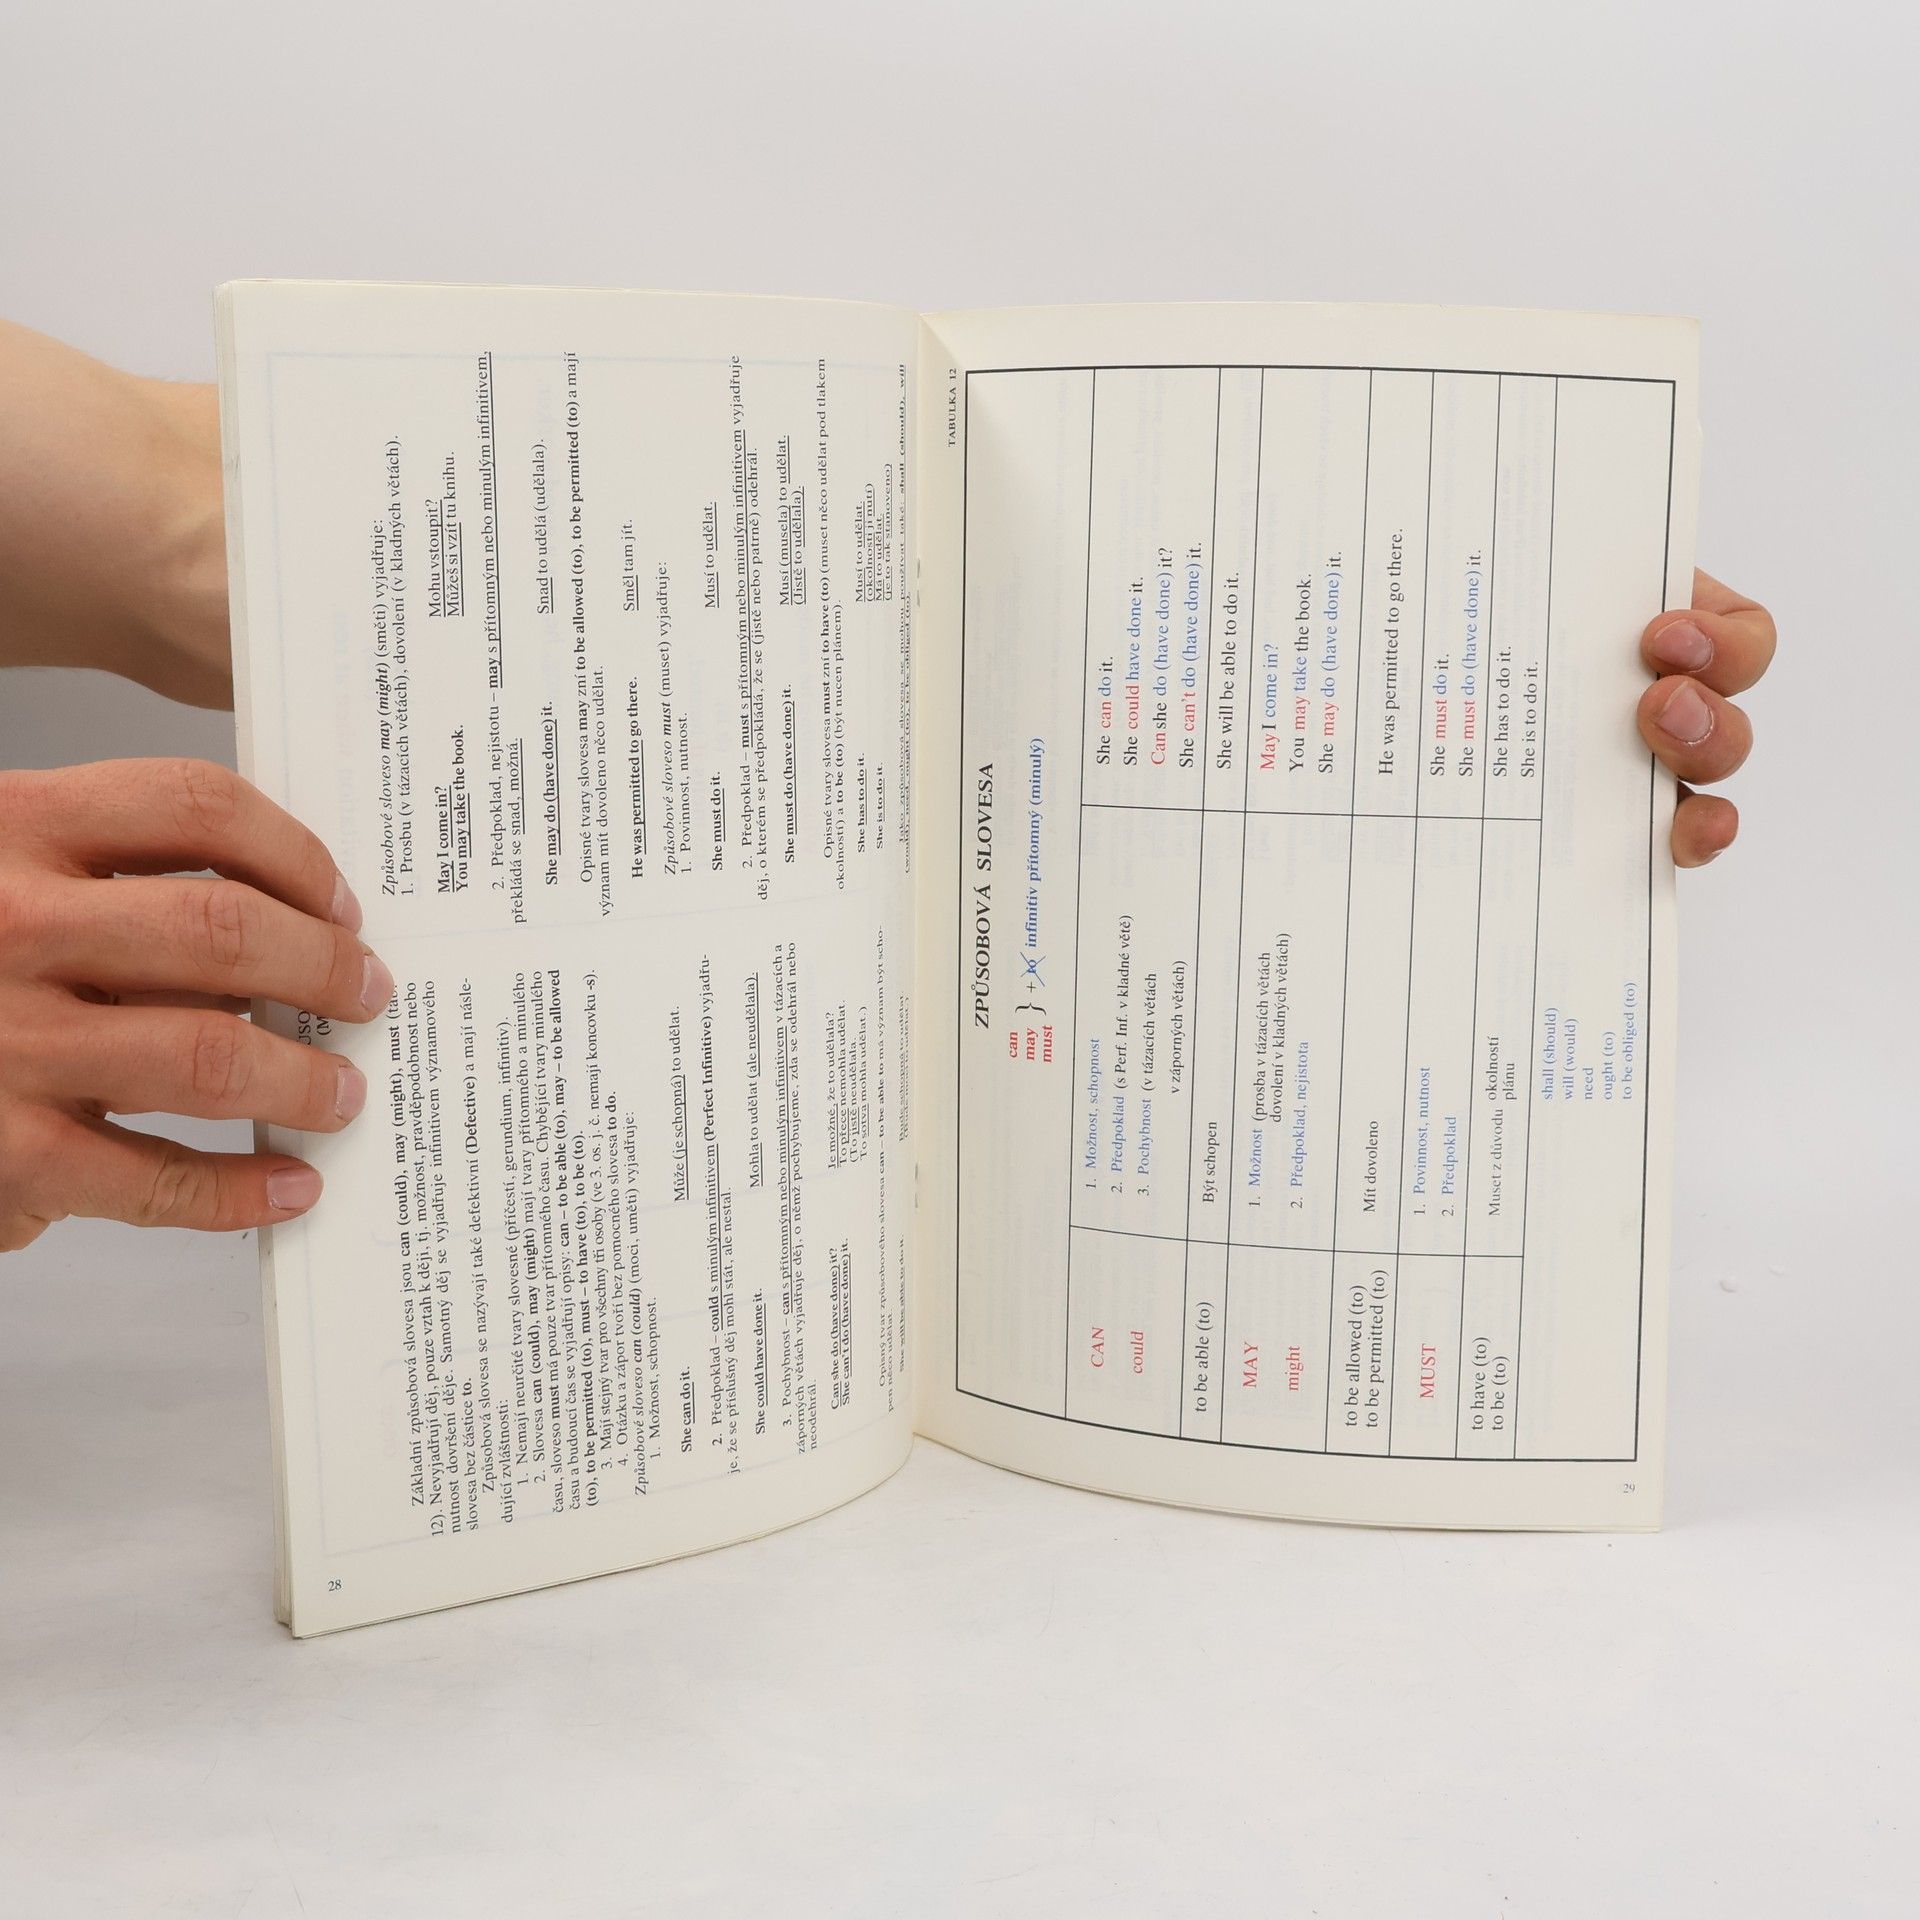 28
Základní způsobová slovesa jsou can (could), may (might), must (tab.
12). Nevyjadřují děj, pouze vztah k ději, tj. možnost, pravděpodobnost nebo
nutnost dovršení děje. Samotný děj se vyjadřuje infinitivem významového
slovesa bez částice to.
Způsobová slovesa se nazývají také defektivní (Defective) a mají násle-
dující zvláštnosti:
1. Nemají neurčité tvary slovesné (příčestí, gerundium, infinitiv).
2. Slovesa can (could), may (might) mají tvary přítomného a minulého
času, sloveso must má pouze tvar přítomného času. Chybějící tvary minulého
času a budoucí čas se vyjadřují opisy: can – to be able (to), may – to be allowed
(to), to be permitted (to), must – to have (to), to be (to).
3. Mají stejný tvar pro všechny tři osoby (ve 3. os. j. č. nemají koncovku -s).
4. Otázku a zápor tvoří bez pomocného slovesa to do.
Způsobové sloveso can (could) (moci, uměti) vyjadřuje:
1. Možnost, schopnost.
She can do it. Může (je schopná) to udělat.
2. Předpoklad – could s minulým infinitivem (Perfect Infinitive) vyjadřu-
je, že se příslušný děj mohl stát, ale nestal.
She could have done it. Mohla to udělat (ale neudělala).
3. Pochybnost – can s přítomným nebo minulým infinitivem v tázacích a
záporných větách vyjadřuje děj, o němž pochybujeme, zda se odehrál nebo
neodehrál.
Can she do (have done) it? Je možné, že to udělala?
She can't do (have done) it. To přece nemohla udělat
(To jistě neudělala.
To sotva mohla udělat.)
Opisný tvar způsobového slovesa can – to be able to má význam být scho-
pen něco udělat.
She will be able to do it.
Způsobové sloveso may (might) (směti) vyjadřuje:
1. Prosbu (v tázacích větách), dovolení (v kladných větách).
May I come in? Mohu vstoupit?
You may take the book. Můžeš si vzít tu knihu.
2. Předpoklad, nejistotu – may s přítomným nebo minulým infinitivem,
překládá se snad, možná.
She may do (have done) it. Snad to udělá (udělala).
Opisné tvary slovesa may zní to be allowed (to), to be permitted (to) a mají
význam mít dovoleno něco udělat.
He was permitted to go there. Směl tam jít.
Způsobové sloveso must (muset) vyjadřuje:
1. Povinnost, nutnost.
She must do it. Musí to udělat.
2. Předpoklad – must s přítomným nebo minulým infinitivem vyjadřuje
děj, o kterém se předpokládá, že se (jistě nebo patrně) odehrál.
She must do (have done) it. Musí (musela) to udělat.
(Jistě to udělala).
Opisné tvary slovesa must zní to have (to) (muset něco udělat pod tlakem
okolností) a to be (to) (být nucen plánem).
She has to do it. Musí to udělat.
(okolnosti ji nutí)
She is to do it. Má to udělat.
(je to tak stanoveno)
Jako způsobová slovesa se mohou používat také: shall (should), will
(would), need, ought (to), to be obliged (to).
TABULKA 12
ZPŮSOBOVÁ SLOVESA
can
may } + to infinitiv přítomný (minulý)
must
CAN 1. Možnost, schopnost She can do it.
could 2. Předpoklad (s Perf. Inf. v kladné větě) She could have done it.
3. Pochybnost (v tázacích větách Can she do (have done) it?
v záporných větách) She can't do (have done) it.
to be able (to) Být schopen She will be able to do it.
MAY 1. Možnost (prosba v tázacích větách May I come in?
dovolení v kladných větách) You may take the book.
might 2. Předpoklad, nejistota She may do (have done) it.
to be allowed (to)
to be permitted (to) Mít dovoleno He was permitted to go there.
MUST 1. Povinnost, nutnost She must do it.
2. Předpoklad She must do (have done) it.
to have (to) Muset z důvodu okolností She has to do it.
to be (to) plánu She is to do it.
shall (should)
will (would)
need
ought (to)
to be obliged (to)
29